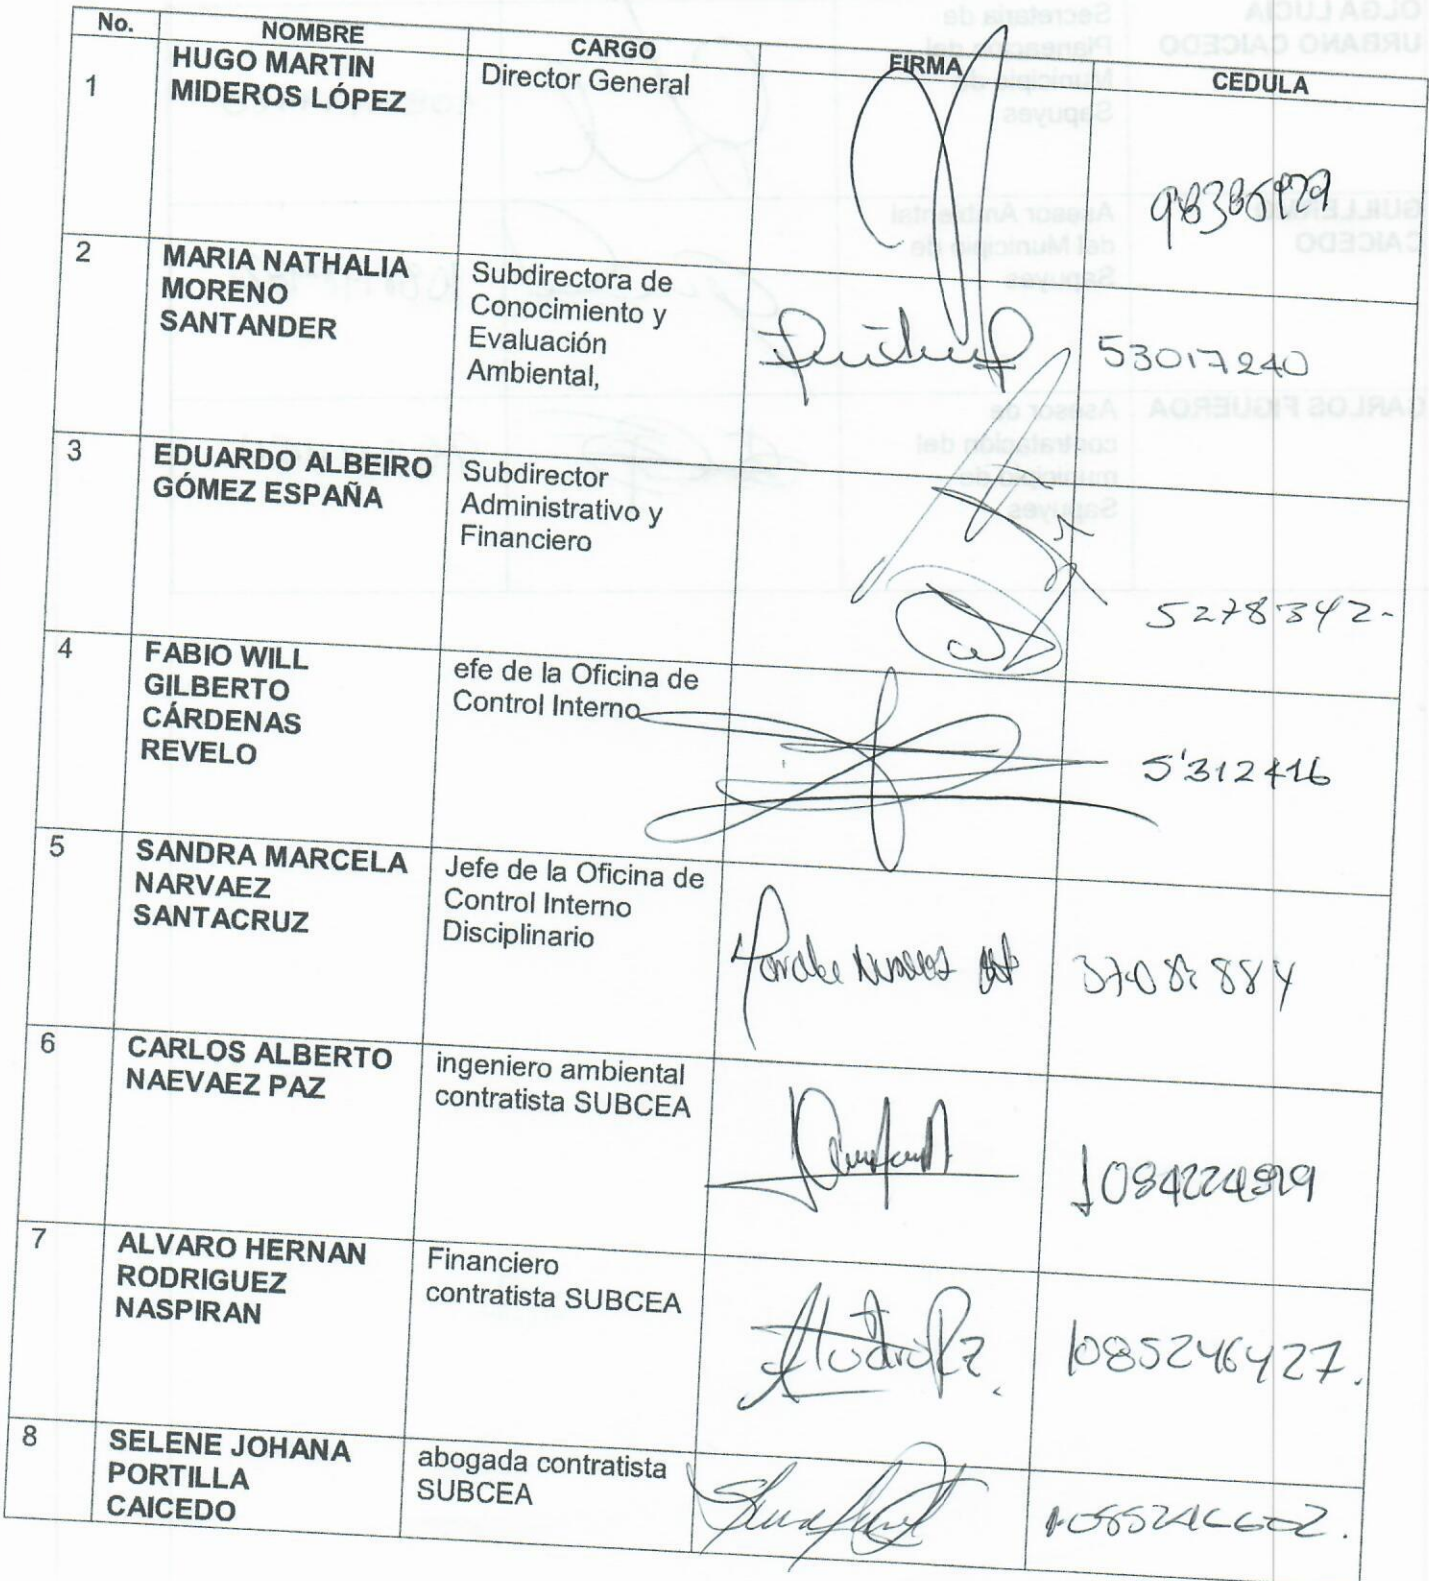 No. NOMBRE CARGO FIRMA CEDULA
1 HUGO MARTIN MIDEROS LÓPEZ
Director General
2 MARIA NATHALIA
MORENO
SANTANDER
Subdirectora de
Conocimiento y
Evaluación
Ambiental,
53017240
3 EDUARDO ALBEIRO
GÓMEZ ESPAÑA
Subdirector
Administrativo y
Financiero
5278342-
4 FABIO WILL
GILBERTO
CÁRDENAS
REVELO
efe de la Oficina de
Control Interno
5'312416
5 SANDRA MARCELA
NARVAEZ
SANTACRUZ
Jefe de la Oficina de
Control Interno
Disciplinario
6 CARLOS ALBERTO
NAEVAEZ PAZ
ingeniero ambiental
contratista SUBCEA
7 ALVARO HERNAN
RODRIGUEZ
NASPIRAN
Financiero
contratista SUBCEA
1085246427.
8 SELENE JOHANA
PORTILLA
CAICEDO
abogada contratista
SUBCEA